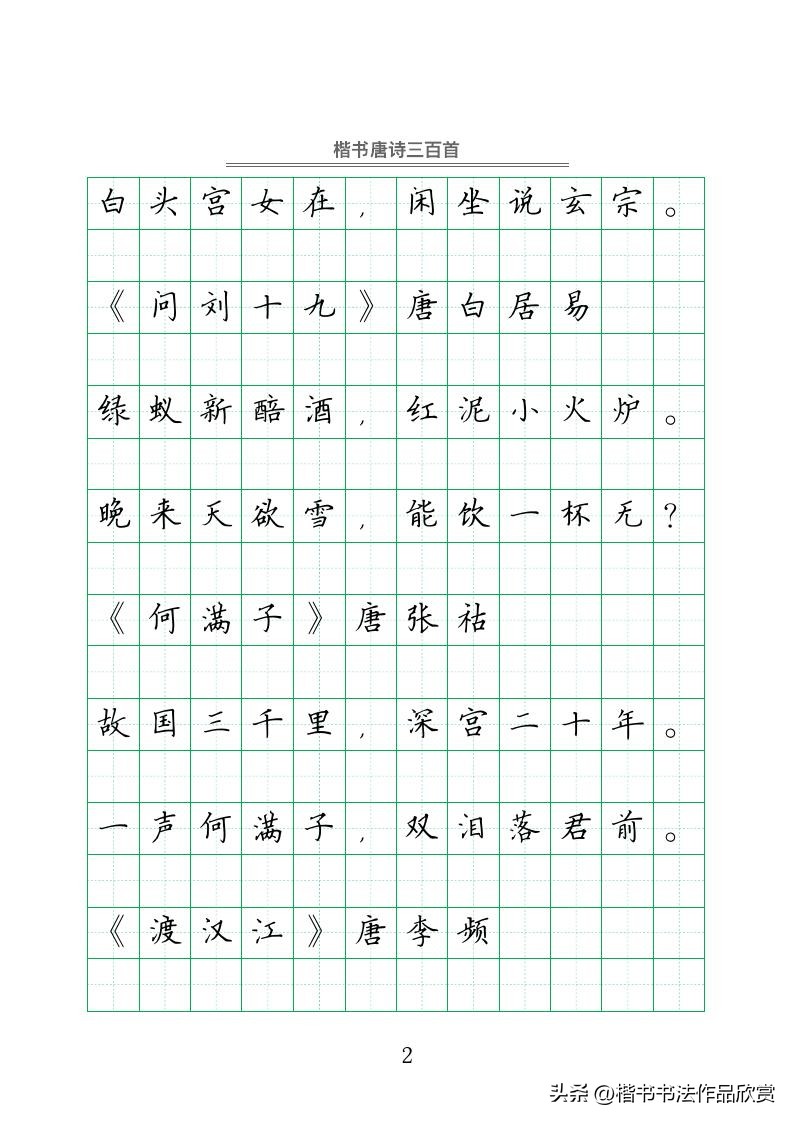 楷书唐诗三百首
白头宫女在，闲坐说玄宗。
《问刘十九》唐白居易
绿蚁新醅酒，红泥小火炉。
晚来天欲雪，能饮一杯无？
《何满子》唐张祜
故国三千里，深宫二十年。
一声何满子，双泪落君前。
《渡汉江》唐李频
2
头条 @楷书书法作品欣赏